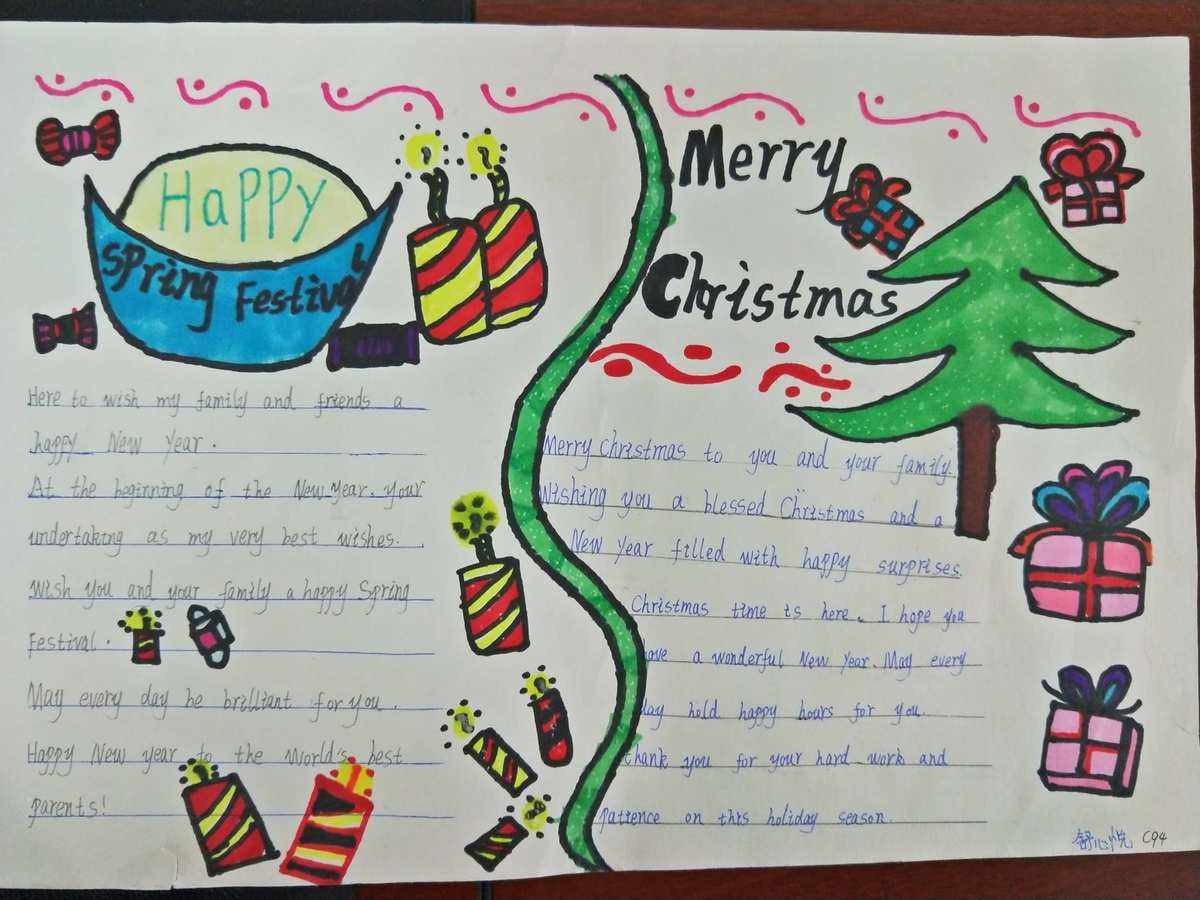 HaPPy
Spring Festival
Here to wish my family and friends a
happy New Year.
At the beginning of the New Year. your
undertaking as my very best wishes.
Wish you and your family a happy Spring
Festival.
May every day be brilliant for you.
Happy New year to the World's best
parents!
Merry
Christmas
Merry Christmas to you and your family.
Wishing you a blessed Christmas and a
New Year filled with happy surprises.
Christmas time is here. I hope you
have a wonderful New Year. May every
day hold happy hours for you.
thank you for your hard work and
patience on this holiday season.
舒心悦 C94